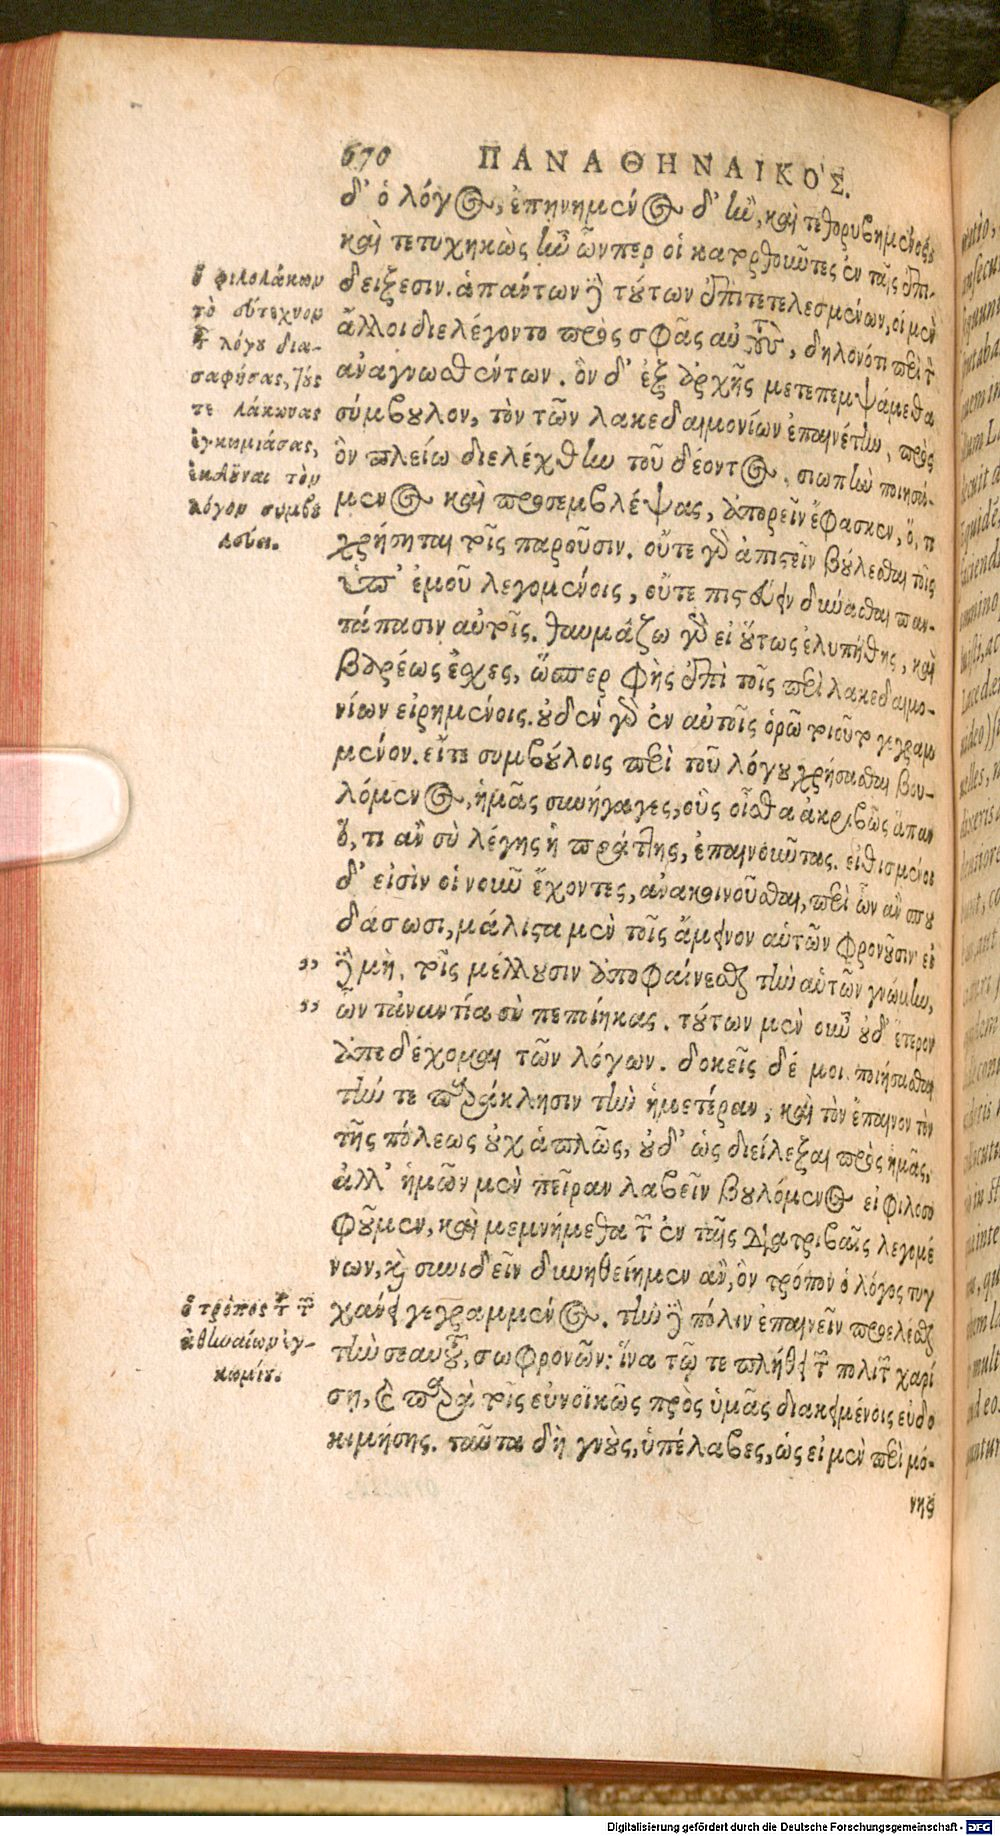 670 ΠΑΝΑΘΗΝΑΙΚΟΣ.
δ' ὁ λόγος, ἐπῃνημένος δ' ἦν, καὶ τεθορυβημένος,
καὶ τετυχηκὼς ἦν ὧνπερ οἱ κατορθοῦντες ἐν ταῖς ἐπι-
δείξεσιν. ἁπάντων δὲ τούτων ἐπιτετελεσμένων, οἱ μὲν
ἄλλοι διελέγοντο πρὸς σφᾶς αὐτοὺς, δηλονότι περὶ τῶν
ἀναγνωσθέντων. ὃν δ' ἐξ ἀρχῆς μετεπεμψάμεθα
σύμβουλον, τὸν τῶν λακεδαιμονίων ἐπαινέτην, πρὸς
ὃν πλείω διελέχθην τοῦ δέοντος, σιωπὴν ποιησά-
μενος καὶ προσεμβλέψας, ἀπορεῖν ἔφασκεν, ὅ, τι
χρήσηται τοῖς παροῦσιν. οὔτε γὰρ ἀπιστεῖν βούλεσθαι τοῖς
ὑπ' ἐμοῦ λεγομένοις, οὔτε πιστεύειν δύνασθαι παν-
τάπασιν αὐτοῖς. θαυμάζω γὰρ εἰ οὕτως ἐλυπήθης, καὶ
βαρέως ἔσχες, ὥσπερ φῂς ἐπὶ τοῖς περὶ λακεδαιμο-
νίων εἰρημένοις. οὐδὲν γὰρ ἐν αὐτοῖς ὁρῶ τοιοῦτο γεγραμ
μένον. εἴτε συμβούλοις περὶ τοῦ λόγου χρήσασθαι βου-
λόμενος, ἡμᾶς συνήγαγες, οὓς οἶσθα ἀκριβῶς ἅπαν
ὅ, τι ἂν σὺ λέγῃς ἢ πράττῃς, ἐπαινοῦντας. εἰθισμένοι
δ' εἰσὶν οἱ νοῦν ἔχοντες, ἀνακοινοῦσθαι, περὶ ὧν ἂν σπου
δάσωσι, μάλιστα μὲν τοῖς ἄμεινον αὑτῶν φρονοῦσιν· εἰ
,, δὲ μὴ, τοῖς μέλλουσιν ἀποφαίνεσθαι τὴν αὑτῶν γνώμην,
,, ὧν τἀναντία σὺ πεποίηκας. τούτων μὲν οὖν οὐδ' ἕτερον
ἀποδέχομαι τῶν λόγων. δοκεῖς δέ μοι ποιήσασθαι
τήν τε παράκλησιν τὴν ἡμετέραν, καὶ τὸν ἔπαινον τὸν
τῆς πόλεως οὐχ ἁπλῶς, οὐδ' ὡς διείλεξαι πρὸς ἡμᾶς,
ἀλλ' ἡμῶν μὲν πεῖραν λαβεῖν βουλόμενος εἰ φιλοσο
φοῦμεν, καὶ μεμνήμεθα τῶν ἐν ταῖς διατριβαῖς λεγομέ
νων, καὶ συνιδεῖν δυνηθείημεν ἂν, ὃν τρόπον ὁ λόγος τυγ
χάνει γεγραμμένος. τὴν δὲ πόλιν ἐπαινεῖν προελέσθαι
τὴν σεαυτοῦ, σωφρονῶν: ἵνα τῷ τε πλήθει τῶν πολιτῶν χαρί
σῃ, καὶ παρὰ τοῖς εὐνοϊκῶς πρὸς ὑμᾶς διακειμένοις εὐδο
κιμήσῃς. ταῦτα δὴ γνοὺς, ὑπέλαβες, ὡς εἰ μὲν περὶ μό-
νης
ὁ φιλολάκων
τὸ εὔτεχνον
τοῦ λόγου δια-
σαφήσας, τούς
τε λάκωνας
ἐγκωμιάσας,
ἐκδοῦναι τὸν
λόγον συμβου
λεύει.
ὁ τρόπος τοῦ τῶν
ἀθηναίων ἐγ-
κωμίου.
Digitalisierung gefördert durch die Deutsche Forschungsgemeinschaft - DFG